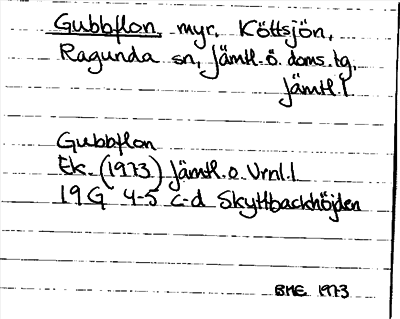 Gubbflon, myr, Köttsjön,
Ragunda sn, Jämtl.ö. doms.tg,
Jämtl.l
Gubbflon
Ek. (1973) Jämtl.o.Vrnl.l
19G 4-5 c-d Skyttbackhöjden
BME 1973